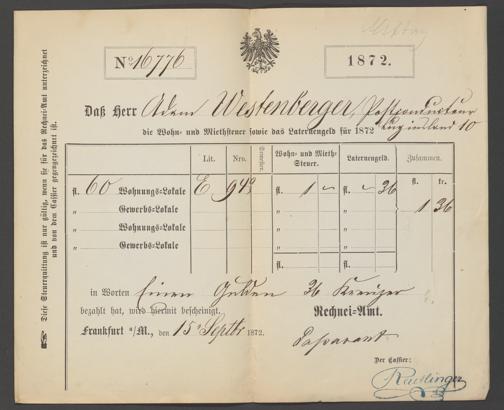 No 16776
1872.
Daß Herr Adam Westenberger, Postconducteur
Luginsland 10
die Wohn- und Miethsteuer sowie das Laternengeld für 1872
Lit. Nro. Semester. Wohn- und Mieth-Steuer. Laternengeld. Zusammen.
fl. kr.
fl. 60 Wohnungs-Lokale E 949 fl. 1 — fl. — 36
„ Gewerbs-Lokale „ „ 1 36
„ Wohnungs-Lokale „ „
„ Gewerbs-Lokale „ „
fl. fl.
in Worten Einen Gulden 36 Kreuzer
bezahlt hat, wird hiermit bescheinigt. Rechnei-Amt.
Frankfurt a/M., den 15 Septbr 1872.
Passavant
Der Cassier:
Raedlinger
Diese Steuerquittung ist nur gültig, wenn sie für das Rechnei-Amt unterzeichnet
und von dem Cassier gegengezeichnet ist.